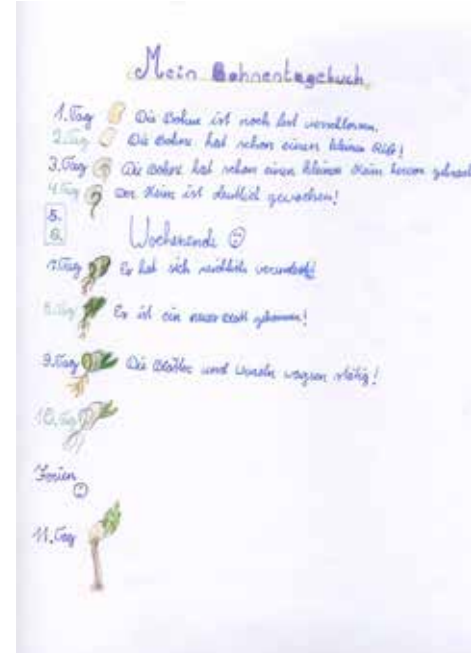 Mein Bohnentagebuch
1. Tag Die Bohne ist noch fest verschlossen.
2. Tag Die Bohne hat schon einen kleinen Riß!
3. Tag Die Bohne hat schon einen kleinen Keim hervor gebracht
4. Tag Der Keim ist deutlich gewachsen!
5.
6.
Wochenende
7. Tag Er hat sich reichlich verändert!
8. Tag Es ist ein neues Blatt gekommen!
9. Tag Die Blätter und Wurzeln wagsen stätig!
10. Tag
Ferien
11. Tag